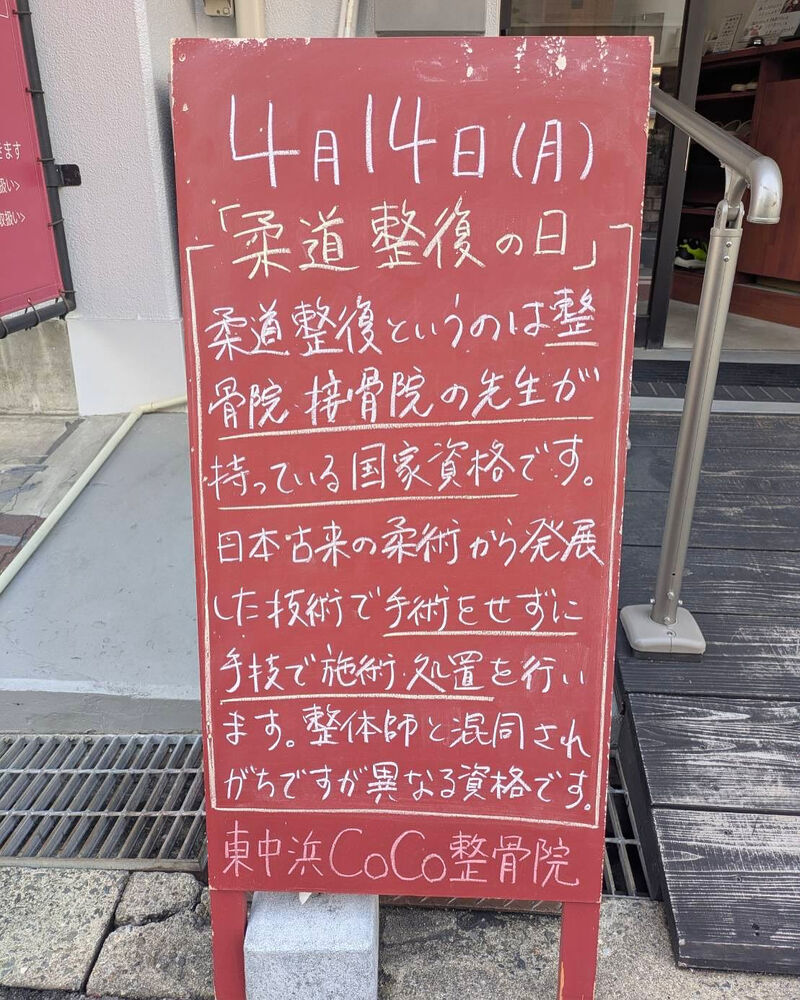 きます
扱い>
取扱い>
4月14日(月)
「柔道整復の日」
柔道整復というのは整
骨院・接骨院の先生が
持っている国家資格です。
日本古来の柔術から発展
した技術で手術をせずに
手技で施術・処置を行い
ます。整体師と混同され
がちですが異なる資格です。
東中浜CoCo整骨院